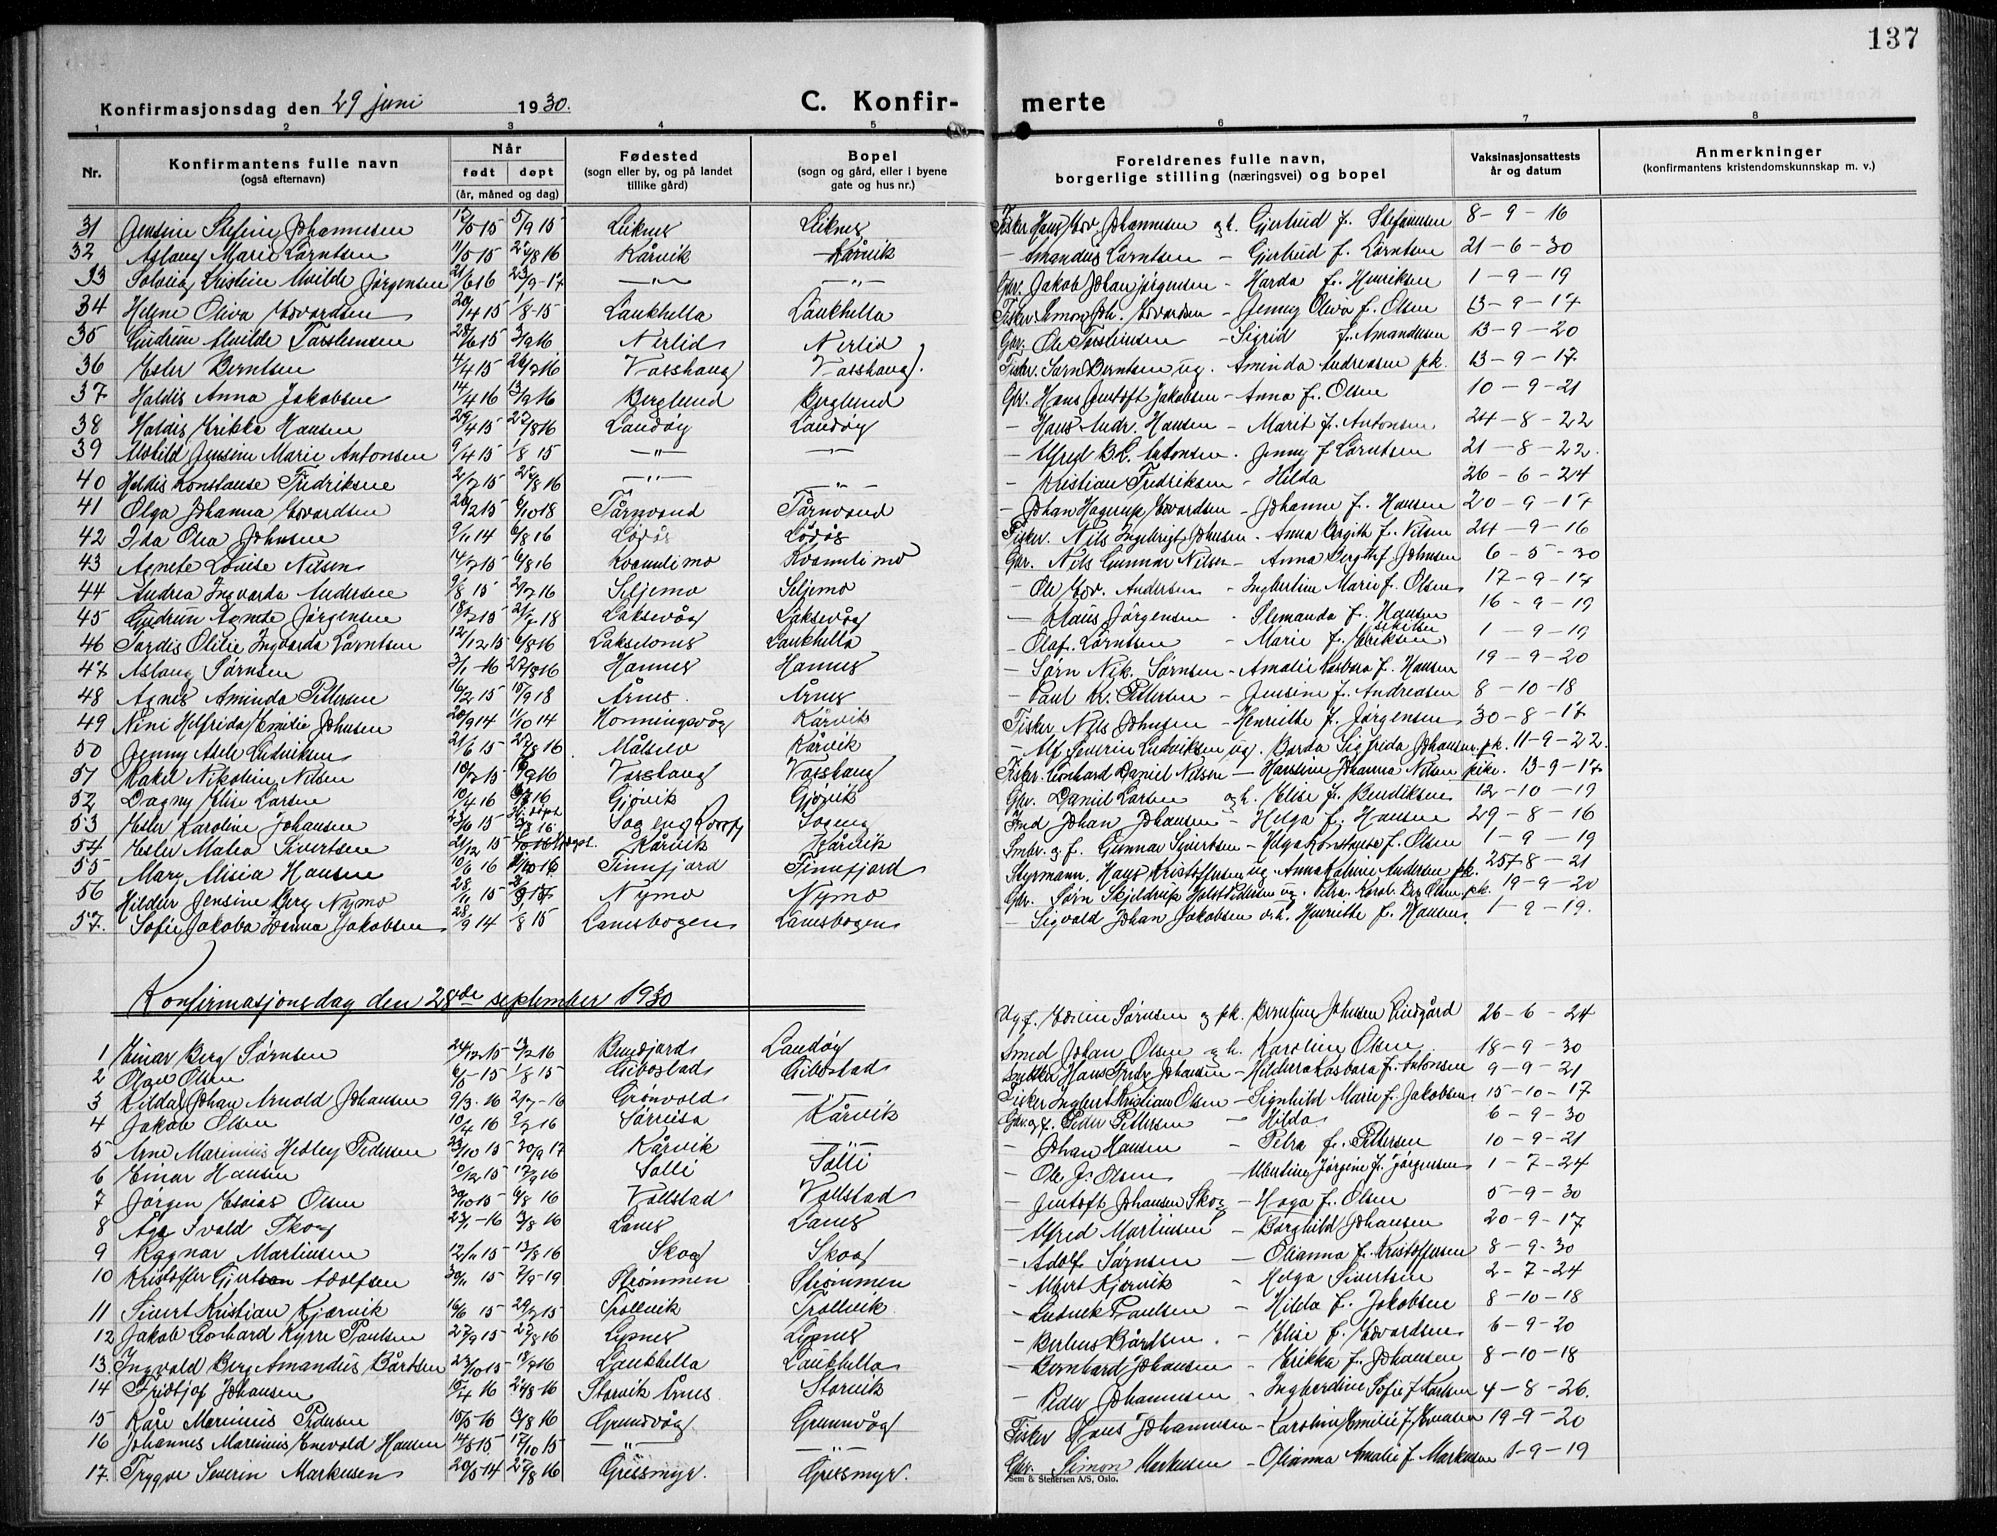 137
Konfirmasjonsdag den 29 juni 1930.
C. Konfirmerte
1 2 3 4 5 6 7 8
Nr. Konfirmantens fulle navn (også efternavn) Når født døpt (år, måned og dag) Fødested (sogn eller by, og på landet tillike gård) Bopel (sogn og gård, eller i byene gate og hus nr.) Foreldrenes fulle navn, borgerlige stilling (næringsvei) og bopel Vaksinasjonsattests år og datum Anmerkninger (konfirmantens kristendomskunnskap m. v.)
31 Jensine Stefine Johannesen 12/5 15 5/9 15 Leiknes Leiknes Fisker Hans Edv. Johannesen og h. Gjertrud f. Stefansen 8-9-16
32 Aslaug Marie Lorntsen 11/5 15 27/8 16 Kårvik Kårvik - Amandus Lorntsen - Gjertrud f. Lorntsen 21-6-30
33 Solveig Kristine Alvilde Jørgensen 21/6 16 23/9-17 -"- -"- Gbr. Jakob Johan Jørgensen - Harda f. Henriksen 1-9-19
34 Helene Oliva Edvardsen 20/4 15 1/8-15 Laukhella Laukhella Fisker Simon Joh. Edvardsen - Jenny Oliva f. Olsen 13-9-17
35 Gudrun Alvilde Torsteinsen 28/6 15 3/9 16 Nerlid Nerlid Gbr. Ole Torsteinsen - Sigrid f. Amandusen 13-9-20
36 Ester Berntsen 4/4 15 26/7 16 Vasshaug Vasshaug Fisker. Sørn Berntsen ug. Aminda Andreasen pk. 13-9-17
37 Haldis Anna Jakobsen 14/4 16 13/9 16 Berglund Berglund Gbr. Hans Jentoft Jakobsen - Anna f. Olsen 10-9-21
38 Haldis Erikka Hansen 29/4 15 27/8 16 Landøy Landøy - Hans Andr. Hansen - Marit f. Antonsen 24-8-22
39 Alvhild Jensine Marie Antonsen 9/4 15 1/8 15 -"- -"- - Alfred B.C. Antonsen. Jenny f Lorntsen 21-8-22.
40 Haldis Konstanse Fredriksen 2/7 15 27/8 16 -"- -"- - Kristian Fredriksen - Hilda 26-6-24
41 Olga Johanna Edvardsen 20/2 15 6/10 18 Tårnvand Tårnvand - Johan Hagerup Edvardsen - Johanne f. Hansen 20-9-17
42 Ida Olea Johnsen 9/1 14 6/8 16 Fisker. Nils Ingebrigt Johnsen - Anna Birgith f. Nilsen 24-9-16
43 Agnete Lovise Nilsen 14/7 15 6/8 16 Kvannlimo Kvannlimo Gbr. Nils Gunnar Nilsen - Anna Bergith f Johnsen 6-5-30
44 Andrea Ingvarda Andersen 9/8 15 2/7 16 Siljemo Siljemo - Ole Edv. Andersen - Ingbertine Marie f. Olsen 17-9-17
45 Gudrun Agnete Jørgensen 18/7 15 21/7 18 Laksevåg Laksevåg - Klaus Jørgensen - f. Hansen 16-9-19
46 Jordis Otilie Ingvarda Lorntsen 12/12 15 6/8 16 Lakselvoms Laukhella - Olaf Lorntsen - Marie f. Eriksen 1-9-19
47 Aslaug Sørnsen 3/1-16 27/8 16 Hannes Hannes - Sørn Nik. Sørnsen - Amalie Kasbara f. Hansen 19-9-20
48 Agnes Aminda Pettersen 16/2 15 15/9 18 Årnes Årnes - Paul Kr. Pettersen - Jensine f. Andreasen 8-10-18
49 Nini Helfrida Emilie Johnsen 20/9 14 1/10 14 Honningsvåg Kårvik Fisker Nils Johnsen - Henriette f. Jørgensen 30-8-17
50 Jenny Asele Ludviksen 21/6 15 27/8 16 Målselv Kårvik - Alf Severin Ludviksen ug. Borda Sigfrida Johansen pk. 11-9-22.
51 Rakel Nikoline Nilsen 10/7 15 17/9 16 Vasshaug Vasshaug Fisker. Leonhard Daniel Nilsen - Hansine Johanna Nilsen pike. 13-9-17
52 Dagny Elise Larsen 10/4 16 6/8 16 Gjøvik Gjøvik Gbr. Daniel Larsen og h. Elise f. Bendiksen 12-10-19
53 Ester Karoline Johansen 23/6 15 Johan Johansen - Helga f. Hansen 29-8-16
54 Ester Malia Sivertsen 21/12 15 Kårvik Kårvik Smbr. og f. Gunnar Sivertsen - Helga Konstanse f. Olsen 1-9-19
55 Mary Alisia Hansen 10/6 16 Finnfjord Finnfjord Styrmann. Hans Kristoffersen ug. Anna Katrine Andersen pk. 25-8-21
56 Hildur Jensine Berg Nymo 28/11 15 Nymo Nymo Gbr. Sørn Skjeldrup Holst Pedersen ug. Petra Karol. Berg Olsen pk. 19-9-20
57. Sofie Jakoba Hanna Jakobsen 28/9 14 1/8 15 Lanesbogen Lanesbogen - Sigvald Johan Jakobsen o.h. Henriette f. Hansen 1-9-19.
Konfirmasjonsdag den 28de september 1930
1 Einar Berg Sørnsen 24/12 15 13/2 16 Bundjord Landøy Ug f. Edvin Sørnsen og pk. Berntine Johnsen Lindgård 26-6-24
2 Olav Olsen 6/5-15 1/8 15 Gibostad Gibostad Smed Johan Olsen og h. Karoline Olsen 18-9-30
3 Kildal Johan Arnold Johansen 9/3-16 2/7-16 Grønvold -"- Snekker Hans Fredr Johansen - Hildera Kasbara f. Antonsen 9-9-21
4 Jakob Olsen 10/4 16 9/7 16 Sørreisa Kårvik Fisker Ingbert Kristian Olsen - Signhild Marie f. Jakobsen 15-10-17
5 Arne Marinius Hedley Pedersen 23/10 15 30/9 17 Kårvik -"- Gbr. og f. Peder Pettersen - Hilda 6-9-30
6 Einar Hansen 10/12 15 17/9 16 Solli Solli - Johan Hansen - Petra f. Pettersen 10-9-21
7 Jørgen Esaias Olsen 30/10 15 6/8 16 Vollstad Vollstad - Ole J. Olsen - Albertine Jørgine f. Jørgensen 1-7-24
8 Åge Ivald Skog 23/1-16 13/8 16 Lanes Lanes - Jentoft Johansen Skog - Haga f. Olsen 5-9-30
9 Ragnar Martinsen 12/11 15 13/8 16 Skog Skog - Alfred Martinsen - Borghild Johansen 20-9-17
10 Kristoffer Gjertsen Adolfsen 30/11 15 7/9-19 Strømmen Strømmen - Adolf Sørnsen - Olianna f. Kristoffersen 8-9-30
11 Sivert Kristian Kjærvik 16/6 15 29/7 15 Trollvik Trollvik - Albert Kjærvik - Helga Sivertsen 2-7-24
12 Jakob Leonhard Kyrre Paulsen 27/9 15 27/8 16 Lysnes Lysnes - Ludvik Paulsen - Hilda f. Jakobsen 8-10-18
13. Ingvald Berg Amandus Bårdsen 23/10 15 18/7 16 Laukhella Laukhella - Berhus Bårdsen. - Elise f. Edvardsen 6-9-20
14 Fridtjof Johansen 5/4 16 27/8-16 Storvik Årnes Storvik - Bernhard Johansen - Erikka f. Johansen 8-10-18
15 Kåre Marinius Pedersen 15/5-16 13/8 16 Grunnvåg Grunnvåg - Peder Johannesen - Ingberdine Sofie f Karlsen 4-8-26.
16 Johannes Marinius Enevold Hansen 14/8 15 17/10 15 -"- -"- Fisker Hans Johannesen - Karoline Emilie f. 19-9-20
17. Trygve Severin Markussen 20/5-14 27/8 16 Grissmyr. Grissmyr. Gbr. Simon Markussen - Olianna Amalie f. Markussen 1-9-19
Sem & Stenersen A/S, Oslo.